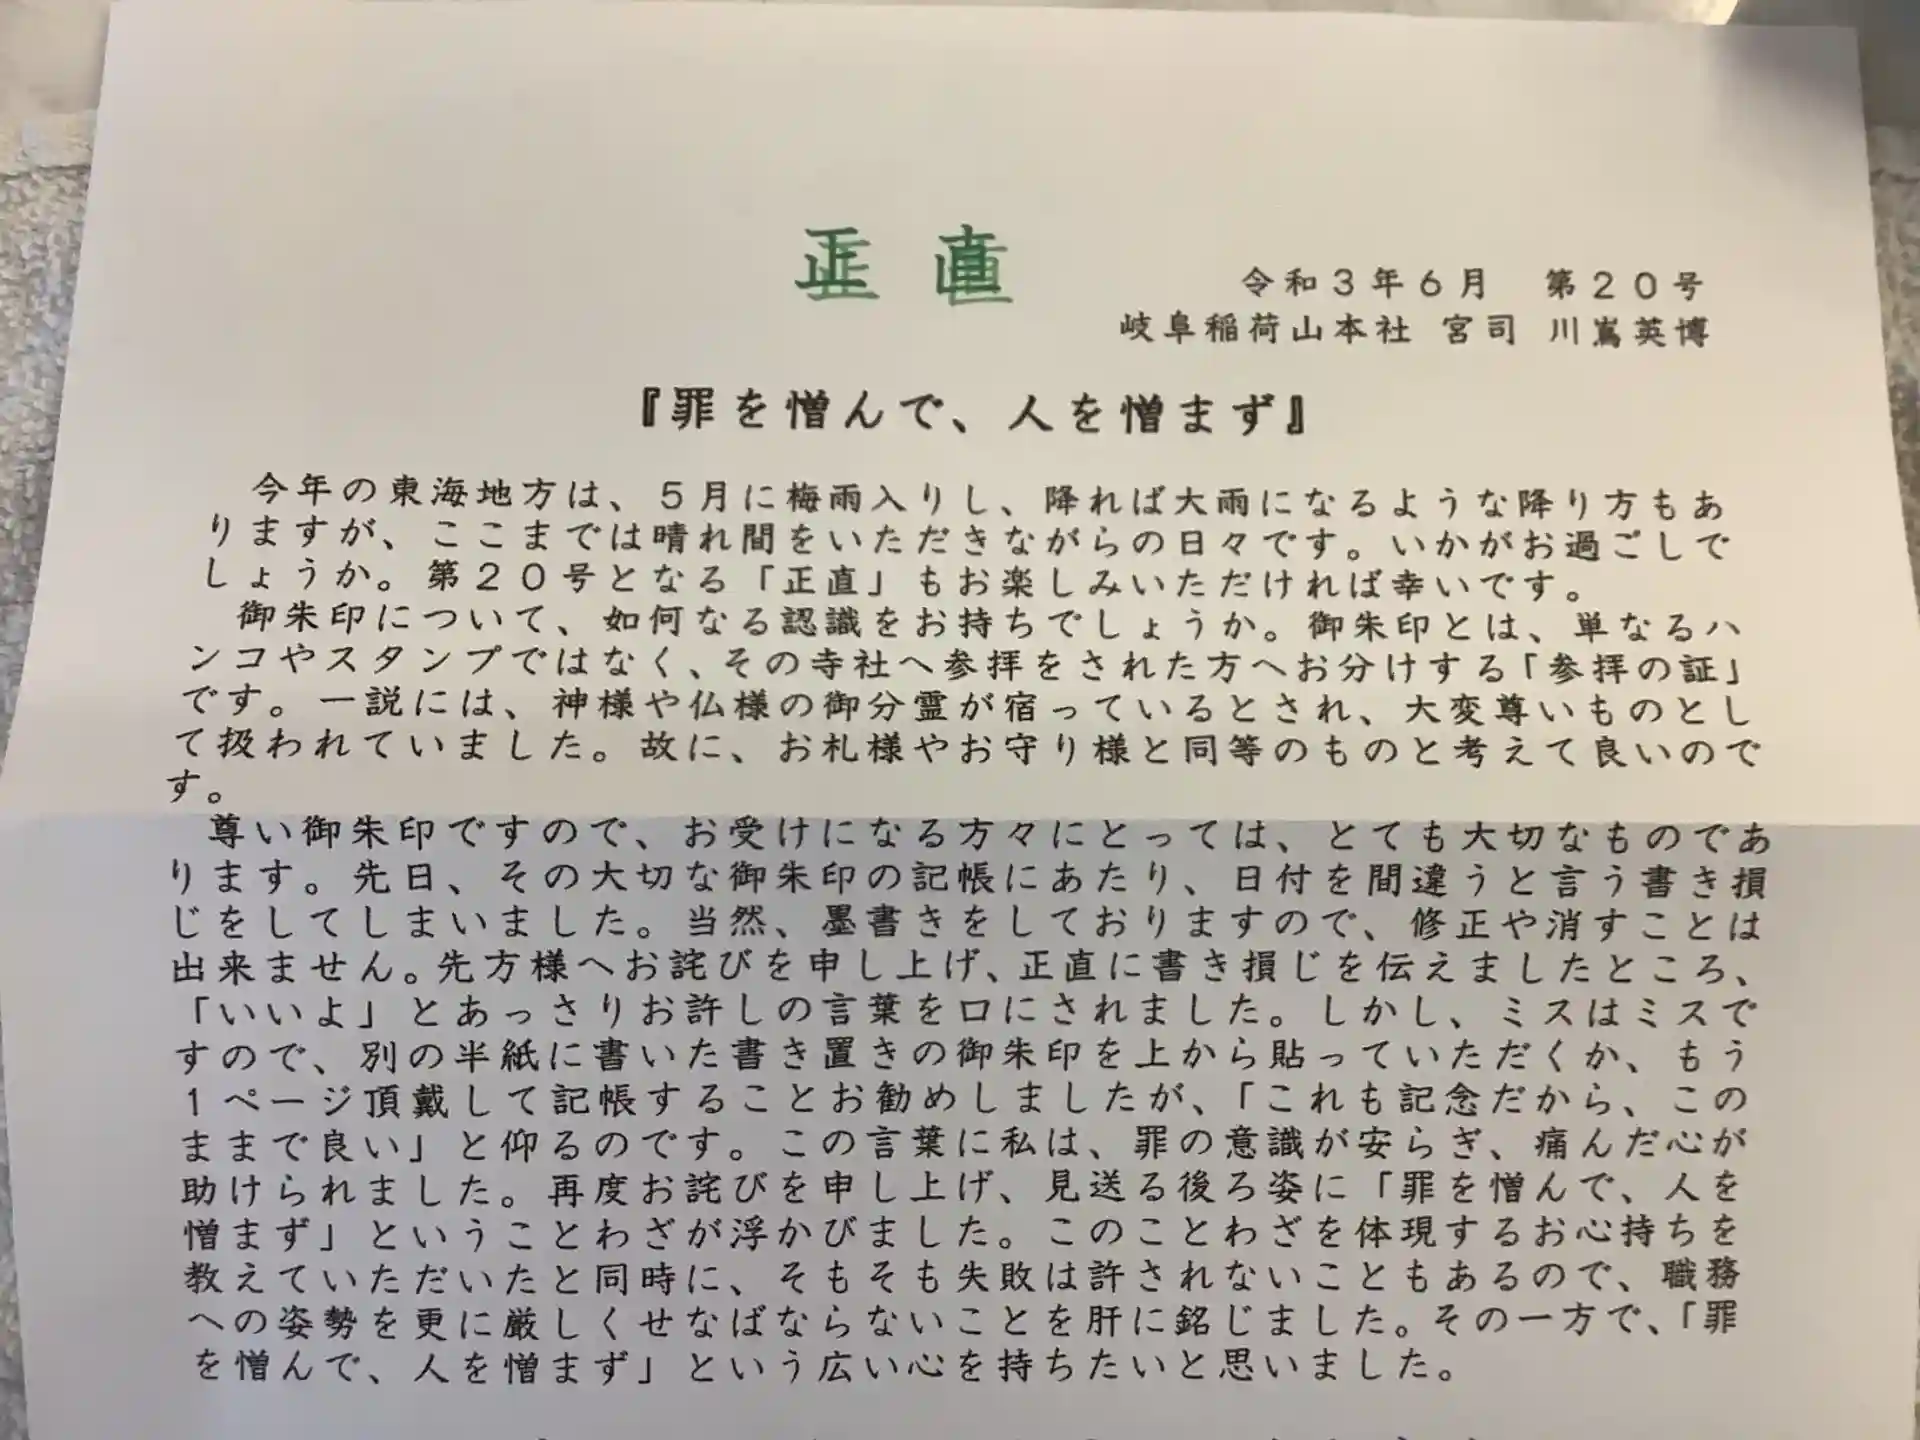 正直
令和３年６月　第２０号
岐阜稲荷山本社 宮司 川嶌英博
『罪を憎んで、人を憎まず』
今年の東海地方は、５月に梅雨入りし、降れば大雨になるような降り方もあ
りますが、ここまでは晴れ間をいただきながらの日々です。いかがお過ごしで
しょうか。第２０号となる「正直」もお楽しみいただければ幸いです。
御朱印について、如何なる認識をお持ちでしょうか。御朱印とは、単なるハ
ンコやスタンプではなく、その寺社へ参拝をされた方へお分けする「参拝の証」
です。一説には、神様や仏様の御分霊が宿っているとされ、大変尊いものとし
て扱われていました。故に、お札様やお守り様と同等のものと考えて良いので
す。
尊い御朱印ですので、お受けになる方々にとっては、とても大切なものであ
ります。先日、その大切な御朱印の記帳にあたり、日付を間違うと言う書き損
じをしてしまいました。当然、墨書きをしておりますので、修正や消すことは
出来ません。先方様へお詫びを申し上げ、正直に書き損じを伝えましたところ、
「いいよ」とあっさりお許しの言葉を口にされました。しかし、ミスはミスで
すので、別の半紙に書いた書き置きの御朱印を上から貼っていただくか、もう
１ページ頂戴して記帳することお勧めしましたが、「これも記念だから、この
ままで良い」と仰るのです。この言葉に私は、罪の意識が安らぎ、痛んだ心が
助けられました。再度お詫びを申し上げ、見送る後ろ姿に「罪を憎んで、人を
憎まず」ということわざが浮かびました。このことわざを体現するお心持ちを
教えていただいたと同時に、そもそも失敗は許されないこともあるので、職務
への姿勢を更に厳しくせなばならないことを肝に銘じました。その一方で、「罪
を憎んで、人を憎まず」という広い心を持ちたいと思いました。